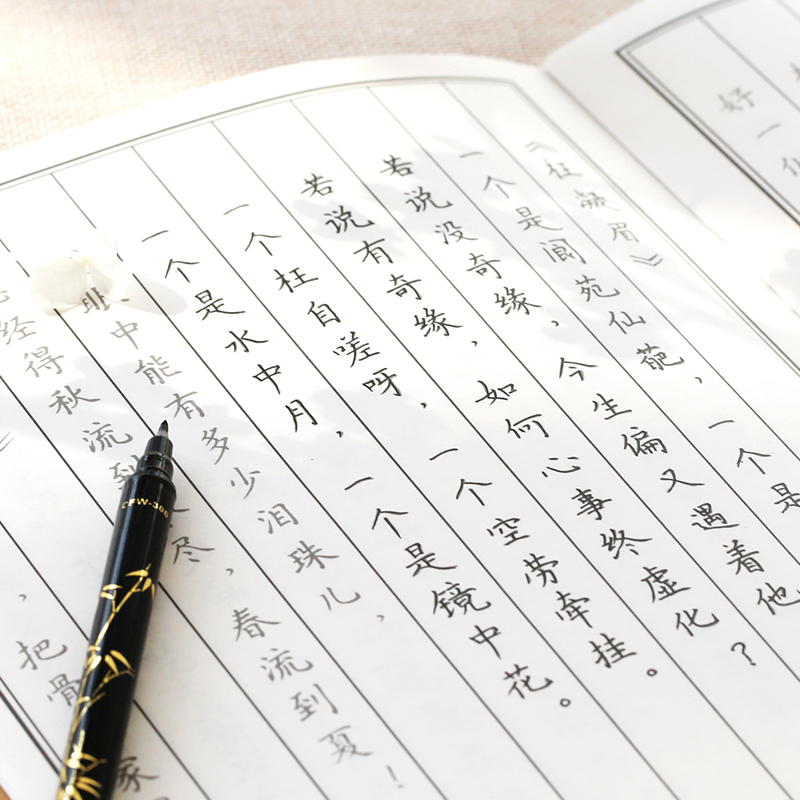 好一仙
《枉凝眉》
一个是阆苑仙葩，一个是
若说没奇缘，今生偏又遇着他
若说有奇缘，如何心事终虚化？
一个枉自嗟呀，一个空劳牵挂。
一个是水中月，一个是镜中花。
眼中能有多少泪珠儿，
经得秋流到尽，春流到夏！
》
，把骨
家
CFW-300